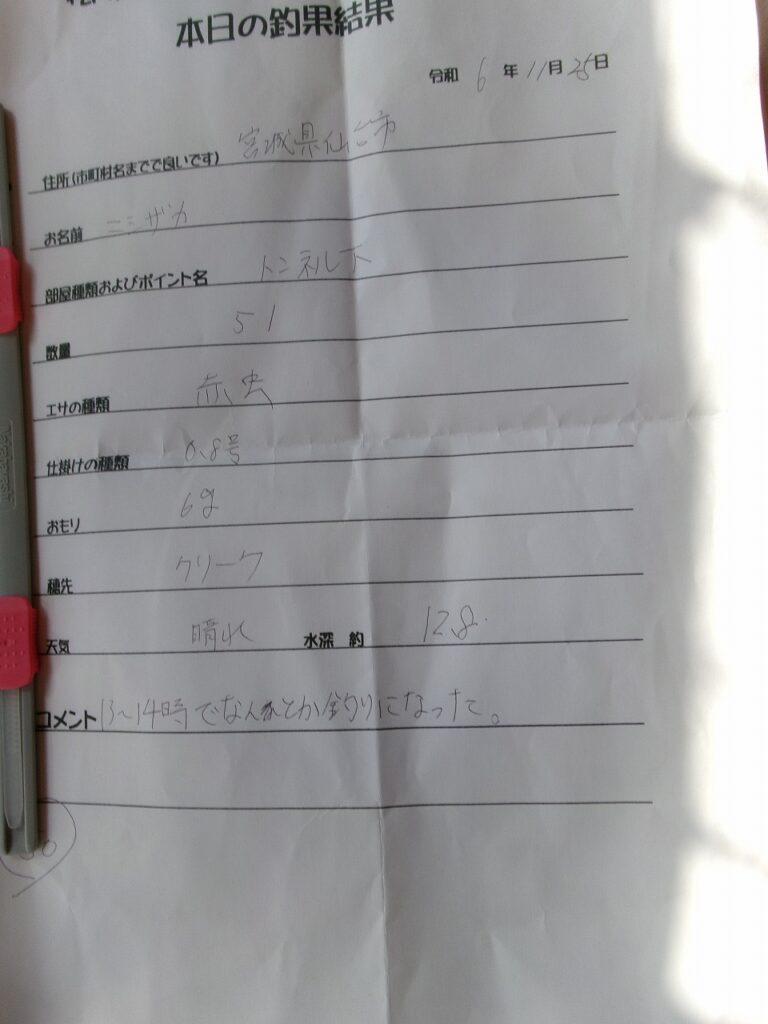 本日の釣果結果
令和 6 年 11 月 25 日
住所(市町村名まで良いです) 宮城県仙台市
お名前 ニシザカ
部屋種類およびポイント名 トンネル下
数量 51
エサの種類 赤虫
仕掛けの種類 0.8号
おもり 6g
穂先 クリーク
天気 晴れ 水深 約 12.8
コメント 13~14時でなんとか釣りになった。